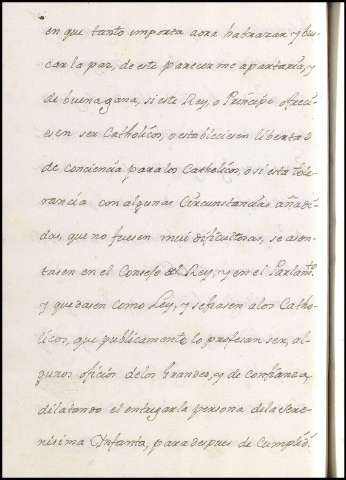 en que tanto importa aora habrazar, y bus-
car la paz, de este parecer me apartaría, y
de buena gana, si este Rey, o Príncipe ofreci-
esen ser Catholicos, o estableciesen libertad
de conciencia para los Catholicos, o si esta tole-
rancia con algunas Circunstancias añadi-
das, que no fuesen mui dificultosas, se asen-
tasen en el Consejo del Rey, y en el Parlamto.
y quedasen como Ley, y se fiasen a los Catho-
licos, que publicamente lo profesan ser, al-
gunos oficios de los Grandes, y de confianza,
dilatando el entregar la persona de la Sere-
nisima Ynfanta, para despues de Cumplidi